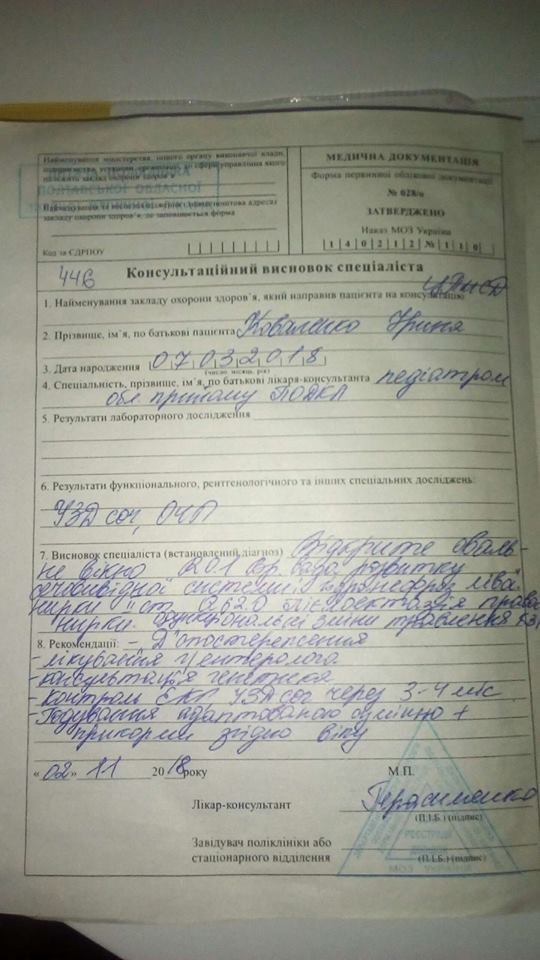 Найменування міністерства, іншого органу виконавчої влади,
підприємства, установи, організації, до сфери управління якого
належить заклад охорони здоров'я
ПОЛТАВСЬКОЇ ОБЛАСНОЇ
Найменування та місцезнаходження (повна поштова адреса)
закладу охорони здоров'я, де заповнюється форма
Код за ЄДРПОУ
МЕДИЧНА ДОКУМЕНТАЦІЯ
Форма первинної облікової документації
№ 028/о
ЗАТВЕРДЖЕНО
Наказ МОЗ України
140212 № 110
446
Консультаційний висновок спеціаліста
1. Найменування закладу охорони здоров'я, який направив пацієнта на консультацію
2. Прізвище, ім'я, по батькові пацієнта Коваленко
3. Дата народження 07032018
(число, місяць, рік)
4. Спеціальність, прізвище, ім'я, по батькові лікаря-консультанта педіатром
прийому ПОДКЛ
5. Результати лабораторного дослідження
6. Результати функціонального, рентгенологічного та інших спеціальних досліджень:
УЗД соч, ОЧП
7. Висновок спеціаліста (встановлений діагноз) Відкрите оваль-
не вікно вада розвитку
сечовивідної системи: гідронефроз лівої
нирки II ст Q62.0 пієлоектазія правої
нирки. Функціональні зміни травлення
8. Рекомендації: - "Д" спостереження
- лікування
- консультація генетика
- контроль ЕКГ УЗД соч через 3-4 міс
- Годування адаптованою сумішшю +
прикорми згідно віку
«02» 11 2018 року
М.П.
Лікар-консультант Герасименко
(П.І.Б.) (підпис)
Завідувач поліклініки або
стаціонарного відділення
(П.І.Б.) (підпис)
МОЗ УКРАЇНИ